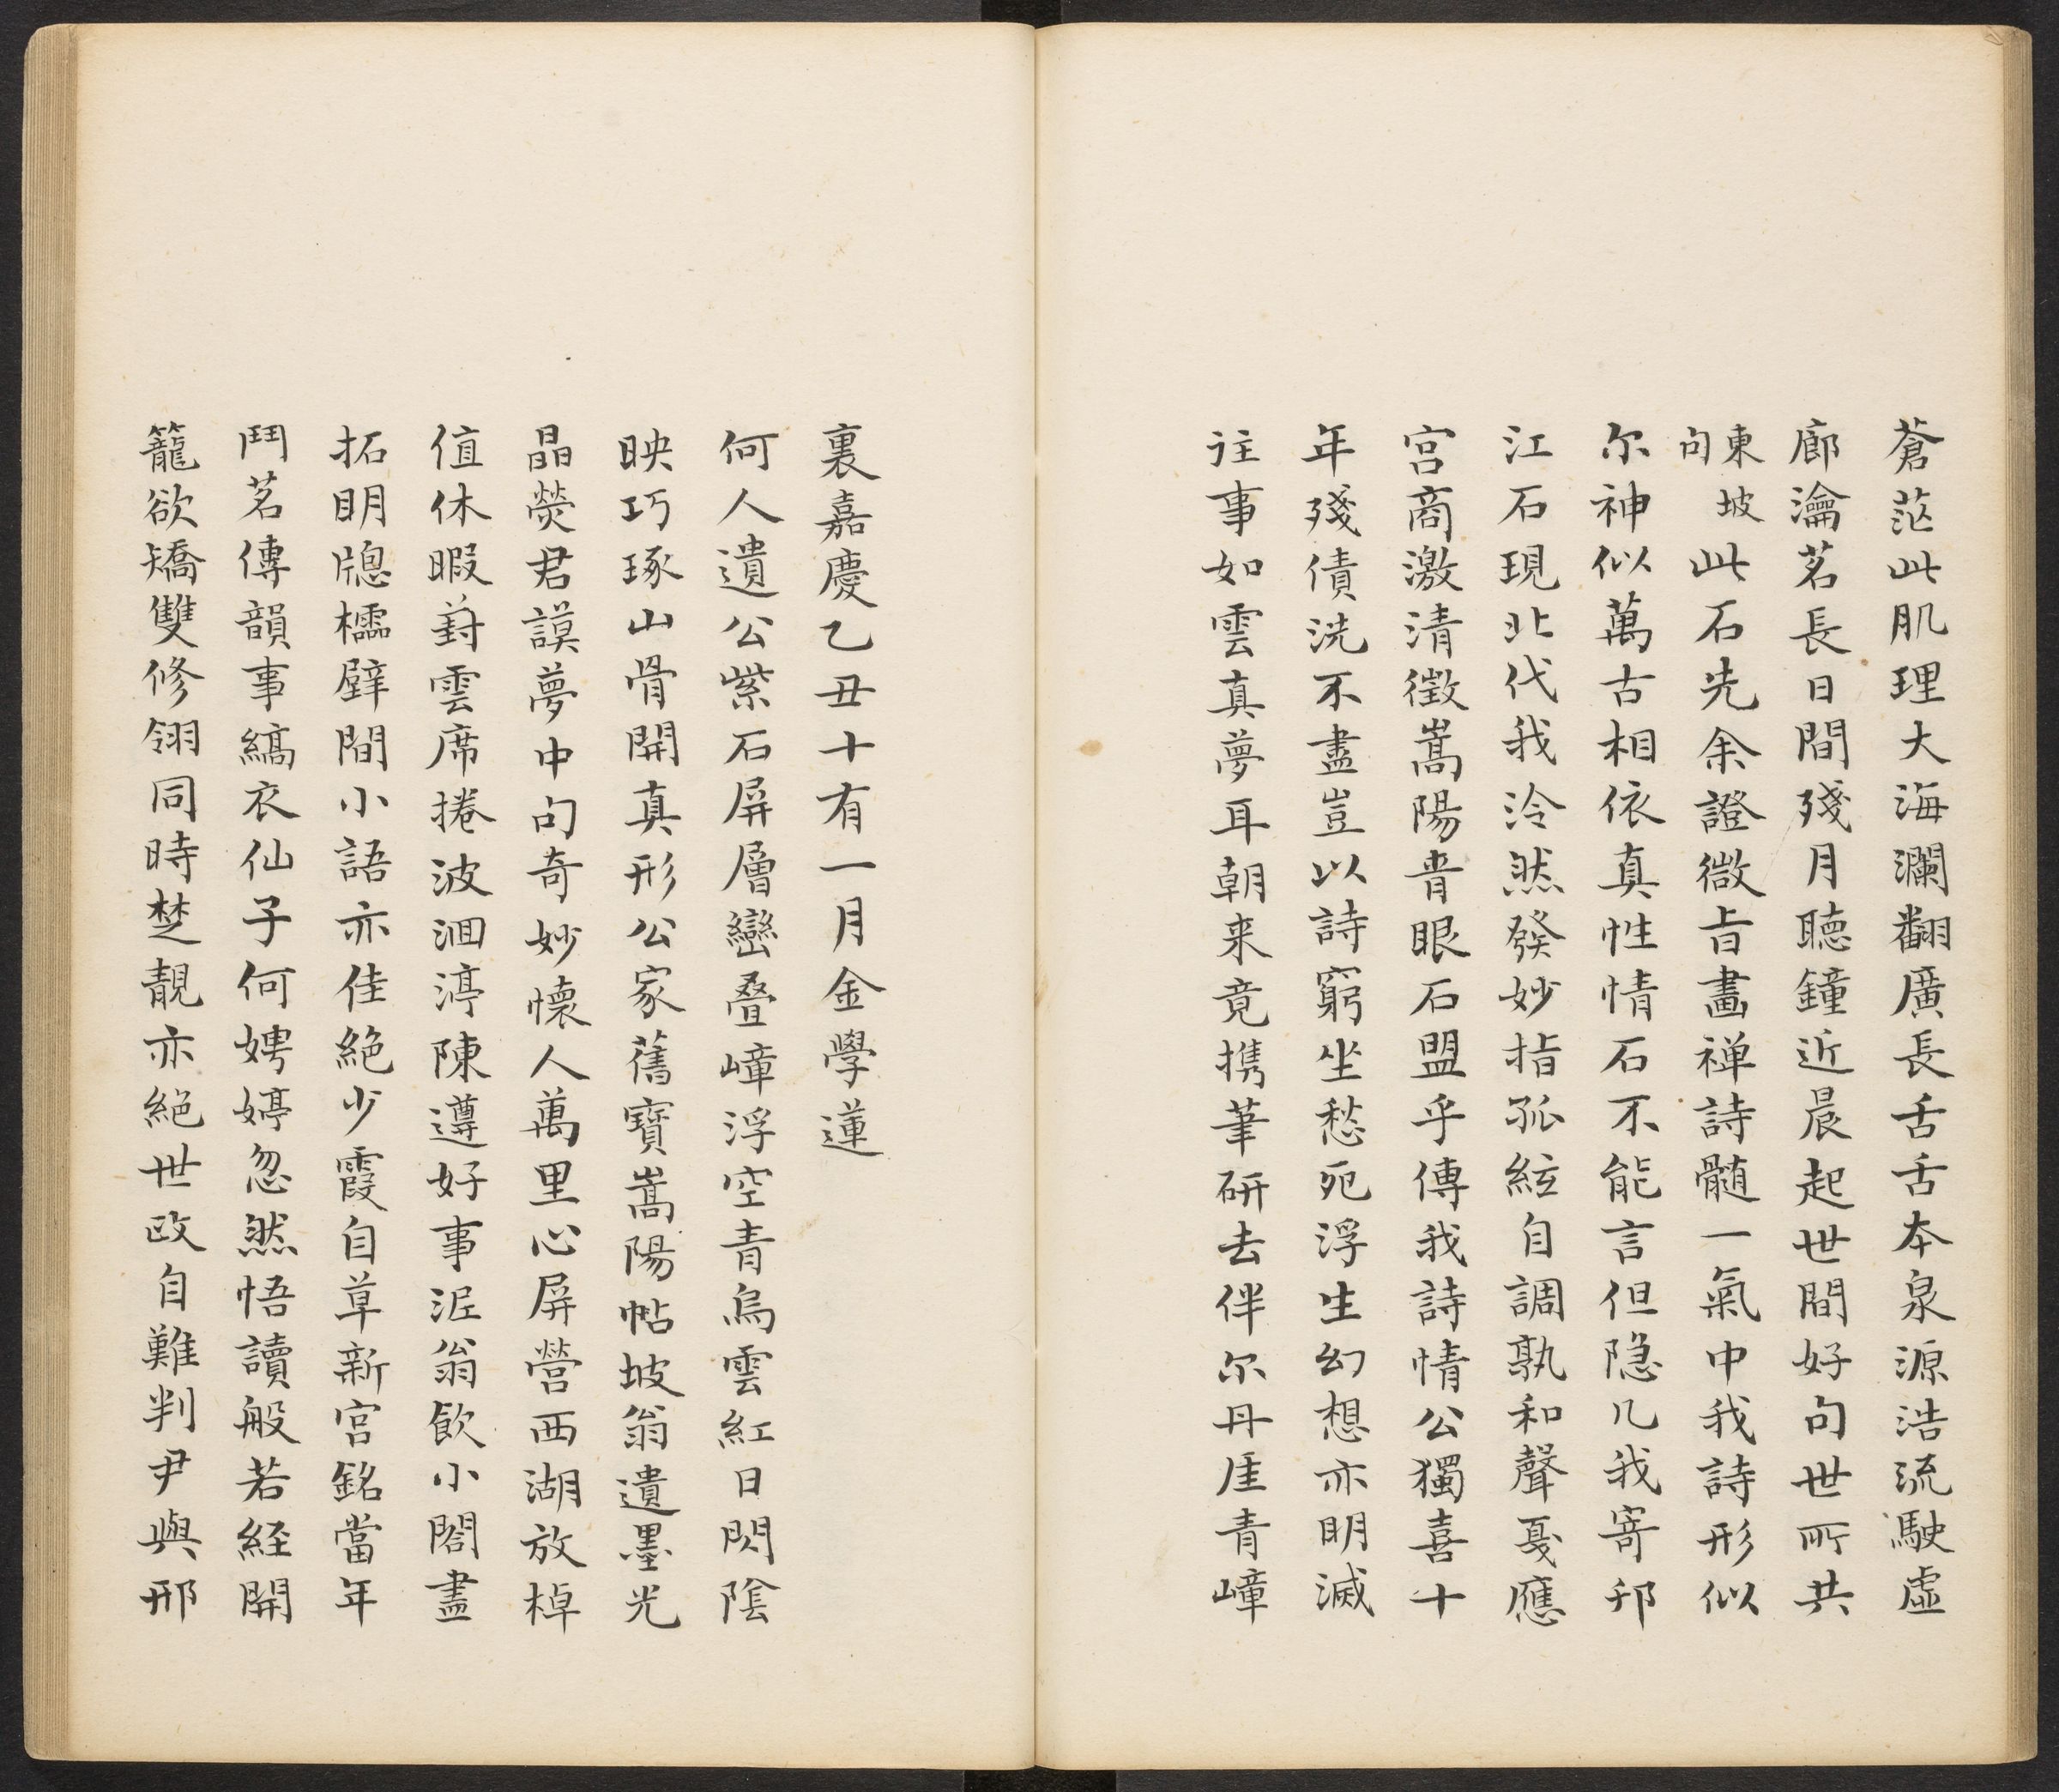 蒼茫此肌理大海瀾翻廣長舌舌本泉源浩流駛虛
廊瀹茗長日間殘月聽鐘近晨起世間好句世所共
東坡句此石先余證微旨畫禅詩髓一氣中我詩形似
尔神似萬古相依真性情石不能言但隐几我寄邗
江石現北代我泠然發妙指孤絃自調孰和聲戛應
宮商激清徵嵩陽青眼石盟乎傳我詩情公獨喜十
年殘債洗不盡豈以詩窮坐愁死浮生幻想亦明滅
往事如雲真夢耳朝来竟攜筆研去伴尔丹厓青嶂
裏嘉慶乙丑十有一月金學蓮
何人遺公紫石屏層巒疊嶂浮空青烏雲紅日閃陰
映巧琢山骨開真形公家舊寶嵩陽帖坡翁遺墨光
晶熒君謨夢中句奇妙懷人萬里心屏營西湖放棹
值休暇葑雲席捲波洄渟陳遵好事泥翁飲小閤盡
拓明牕櫺壁間小語亦佳絕少霞自草新宮銘當年
鬥茗傳韻事縞衣仙子何娉婷忽然悟讀般若経開
籠欲矯雙修翎同時楚靚亦絕世政自難判尹與邢